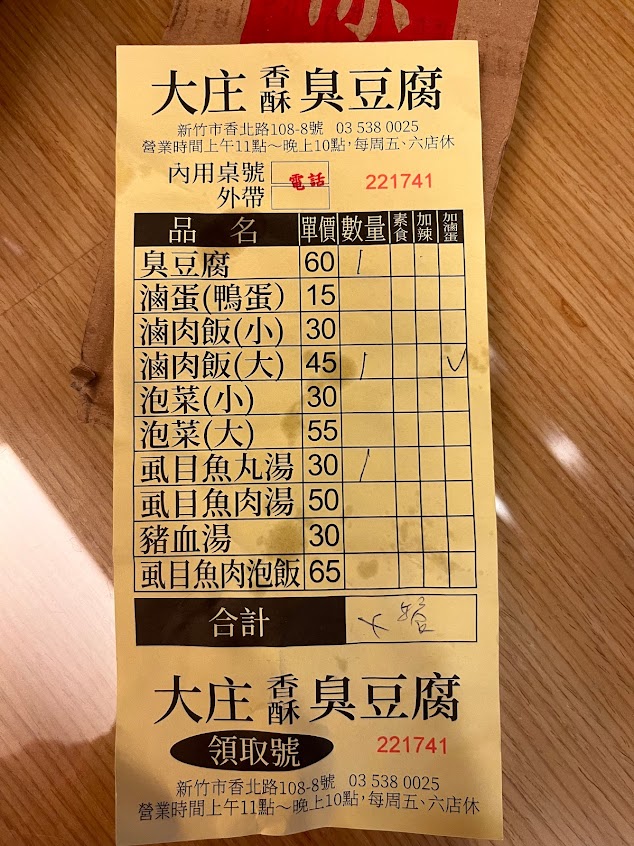 大庄香酥臭豆腐
新竹市香北路108-8號 03 538 0025
營業時間上午11點～晚上10點,每周五、六店休
內用桌號
電話
221741
外帶
品名 單價 數量 素食 加辣 加滷蛋
臭豆腐 60 /
滷蛋(鴨蛋) 15
滷肉飯(小) 30
滷肉飯(大) 45 / V
泡菜(小) 30
泡菜(大) 55
虱目魚丸湯 30 /
虱目魚肉湯 50
豬血湯 30
虱目魚肉泡飯 65
合計
大庄香酥臭豆腐
領取號 221741
新竹市香北路108-8號 03 538 0025
營業時間上午11點～晚上10點,每周五、六店休